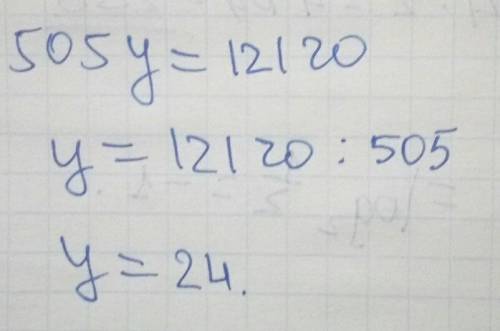 505y = 12120
y = 12120 : 505
y = 24.